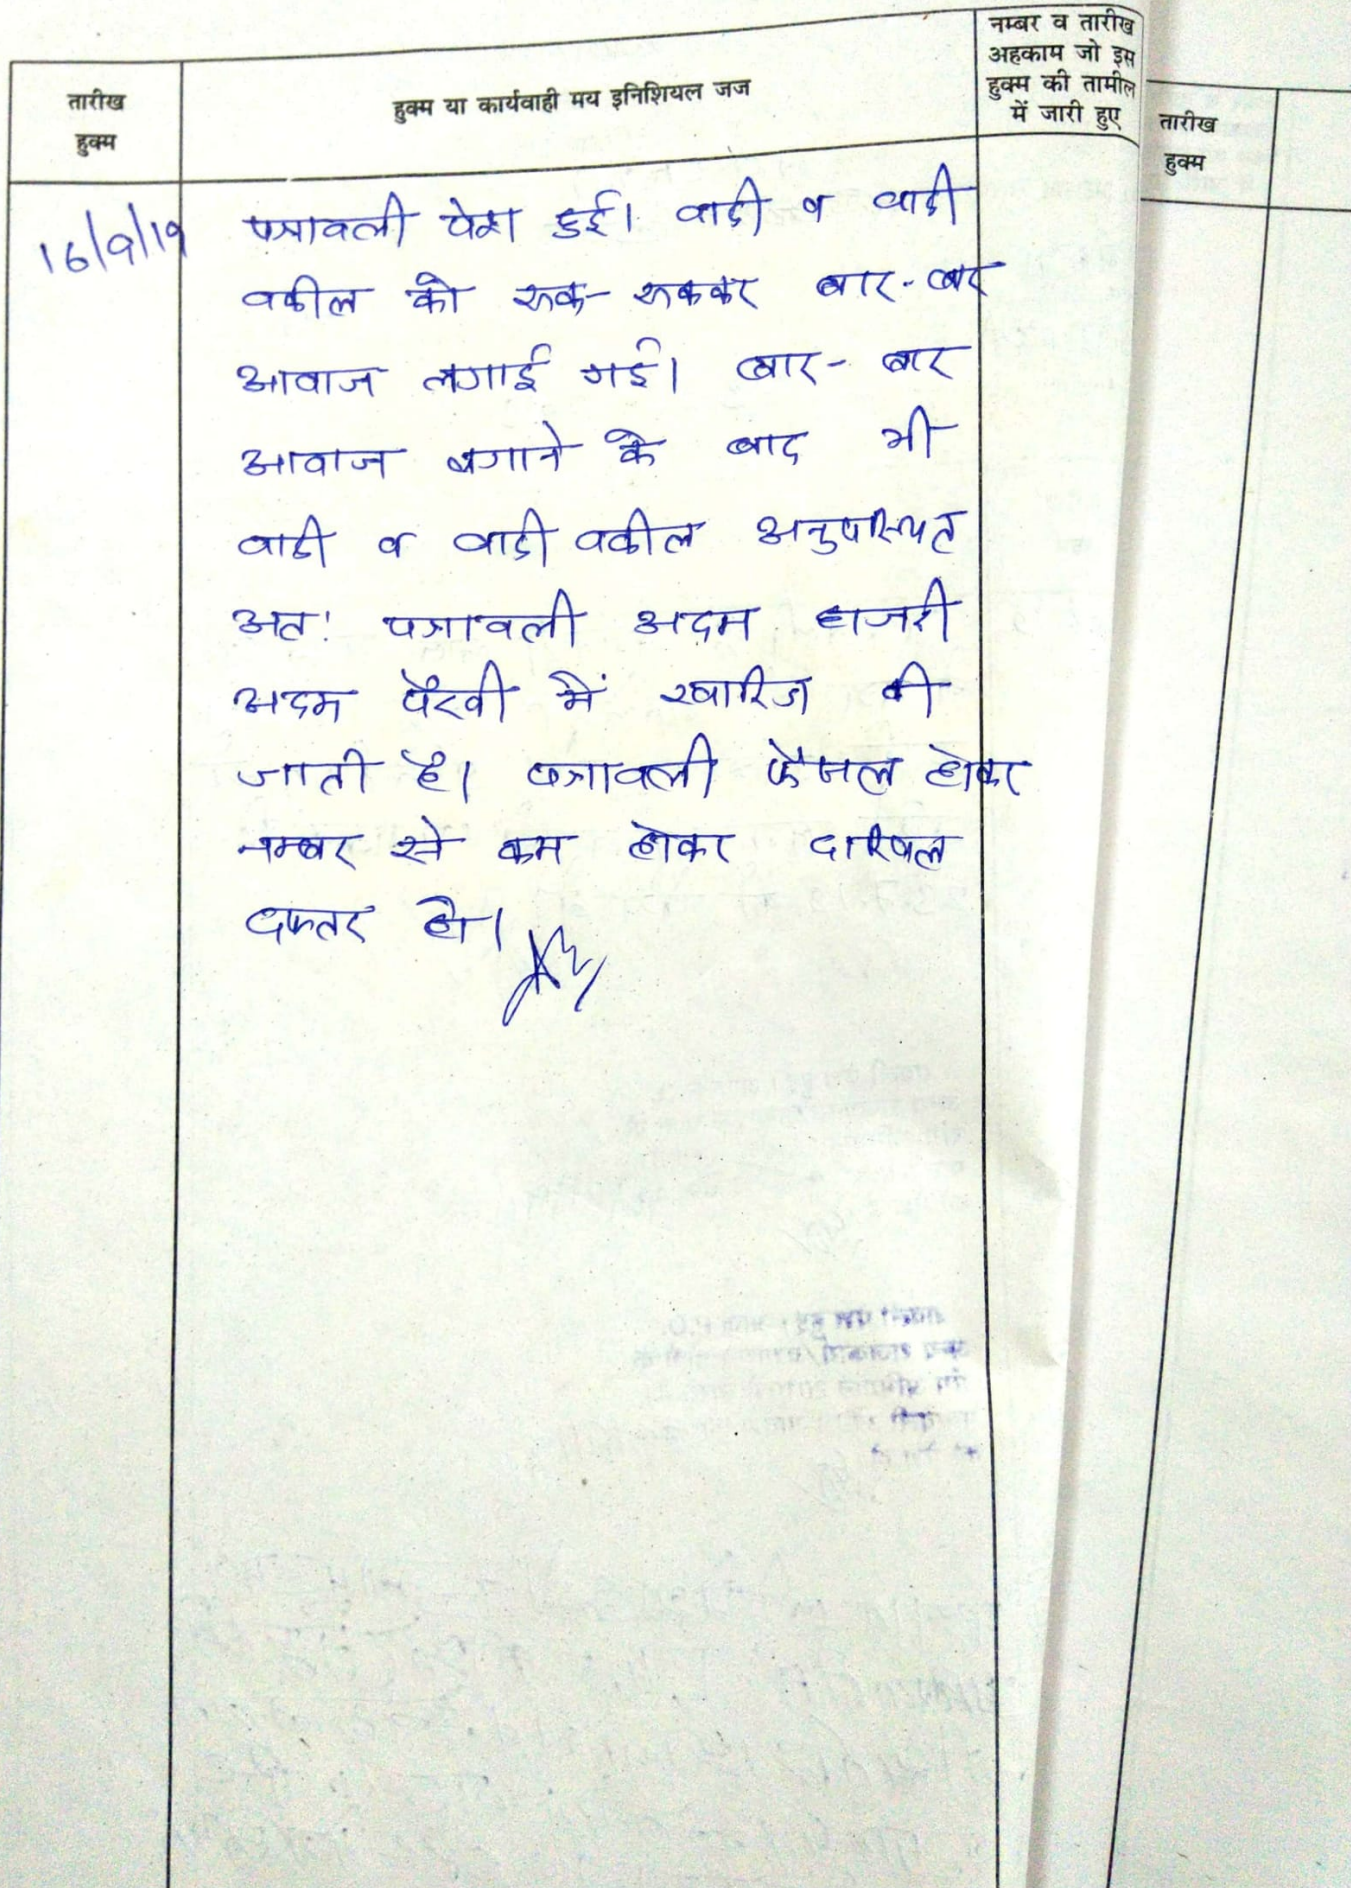 तारीख
हुक्म
हुक्म या कार्यवाही मय इनिशियल जज
नम्बर व तारीख
अहकाम जो इस
हुक्म की तामील
में जारी हुए
16/9/19
पत्रावली पेश हुई। वादी व वादी
वकील को रूक-रूककर बार-बार
आवाज लगाई गई। बार-बार
आवाज लगाने के बाद भी
वादी व वादी वकील अनुपस्थित
अतः पत्रावली अदम हाजरी
अदम पैरवी में खारिज की
जाती है। पत्रावली फैसल होकर
नम्बर से कम होकर दाखिल
दफ्तर हो।
तारीख
हुक्म